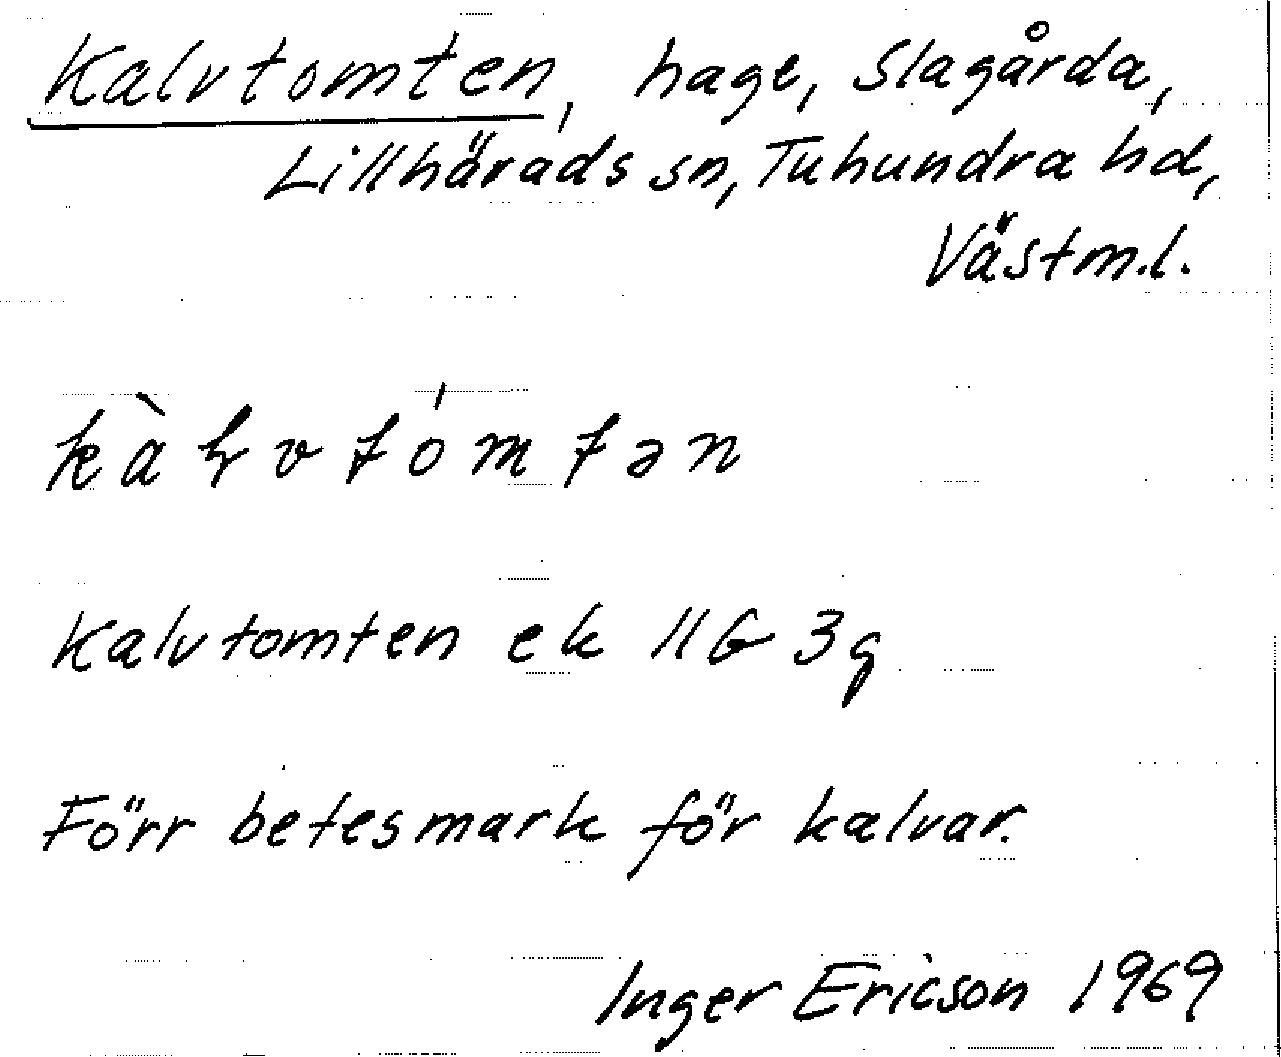 Kalvtomten, hage, Slagårda,
Lillhärads sn, Tuhundra hd,
Västm.l.
kàɽvtómtən
Kalvtomten ek 11G 3g
Förr betesmark för kalvar.
Inger Ericson 1969